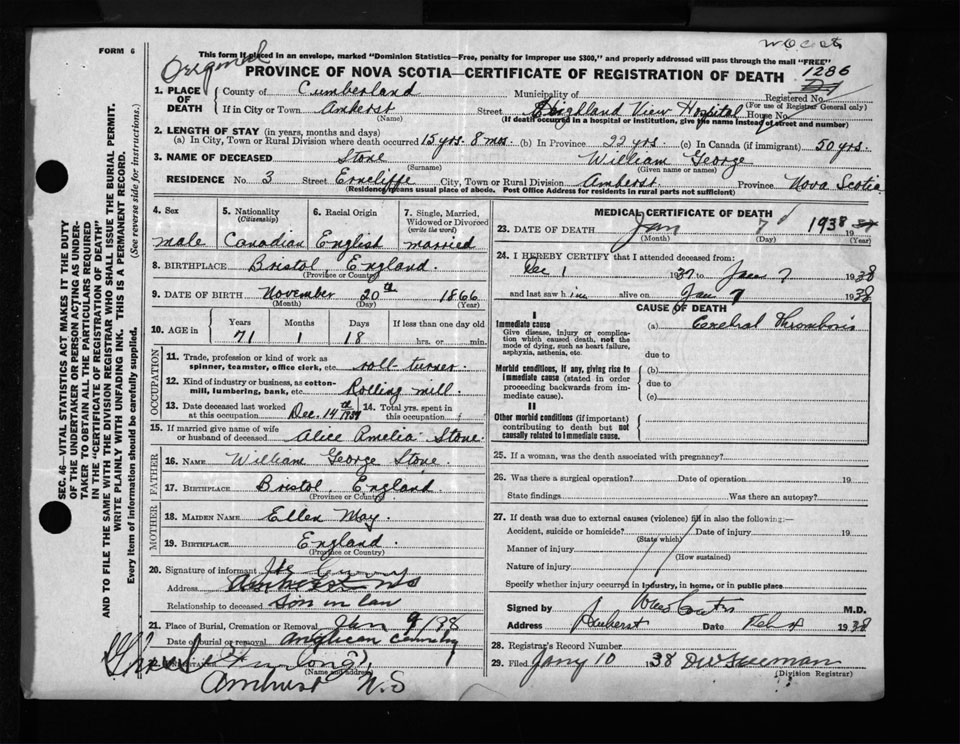 W.O.C. at
FORM 6
Original
This form if placed in an envelope, marked "Dominion Statistics—Free, penalty for improper use $300," and properly addressed will pass through the mail "FREE"
PROVINCE OF NOVA SCOTIA—CERTIFICATE OF REGISTRATION OF DEATH
1286
1. PLACE OF DEATH County of Cumberland Municipality of Registered No.
(For use of Registrar General only)
If in City or Town Amherst Street Highland View Hospital House No.
(Name) (If death occurred in a hospital or institution, give the name instead of street and number)
2. LENGTH OF STAY (in years, months and days)
(a) In City, Town or Rural Division where death occurred 15 yrs. 8 mos. (b) In Province 22 yrs. (c) In Canada (if immigrant) 50 yrs.
3. NAME OF DECEASED Stone William George
(Surname) (Given name or names)
RESIDENCE No. 3 Street Erncliffe City, Town or Rural Division Amherst Province Nova Scotia
(Residence means usual place of abode. Post Office Address for residents in rural parts not sufficient)
SEC. 46—VITAL STATISTICS ACT MAKES IT THE DUTY
OF THE UNDERTAKER OR PERSON ACTING AS UNDER-
TAKER TO OBTAIN ALL THE PARTICULARS REQUIRED
IN THE "CERTIFICATE OF REGISTRATION OF DEATH"
AND TO FILE THE SAME WITH THE DIVISION REGISTRAR WHO SHALL ISSUE THE BURIAL PERMIT.
WRITE PLAINLY WITH UNFADING INK. THIS IS A PERMANENT RECORD.
Every item of information should be carefully supplied. (See reverse side for instructions.)
4. Sex 5. Nationality (Citizenship) 6. Racial Origin 7. Single, Married, Widowed or Divorced (write the word)
male Canadian English married
8. BIRTHPLACE Bristol England
(Province or Country)
9. DATE OF BIRTH November 20th 1866
(Month) (Day) (Year)
10. AGE in Years Months Days If less than one day old
71 1 18 hrs. or min.
OCCUPATION
11. Trade, profession or kind of work as spinner, teamster, office clerk, etc. roll turner
12. Kind of industry or business, as cotton-mill, lumbering, bank, etc. Rolling mill
13. Date deceased last worked at this occupation Dec. 14th 1937 14. Total yrs. spent in this occupation
15. If married give name of wife or husband of deceased Alice Amelia Stone
FATHER
16. NAME William George Stone
17. BIRTHPLACE Bristol, England
(Province or Country)
MOTHER
18. MAIDEN NAME Ellen May
19. BIRTHPLACE England
(Province or Country)
20. Signature of informant
Address Amherst NS
Relationship to deceased Son in law
21. Place of Burial, Cremation or Removal Jan 9/38
Date of burial or removal Anglican Cemetery
22. UNDERTAKER Furlong
(Name and address)
Amherst N.S
MEDICAL CERTIFICATE OF DEATH
23. DATE OF DEATH Jan 7 1938 19
(Month) (Day) (Year)
24. I HEREBY CERTIFY that I attended deceased from:
Dec 1 1937 to Jan 7 1938
and last saw him alive on Jan 7 1938
CAUSE OF DEATH
I
Immediate cause (a) Cerebral Thrombosis
Give disease, injury or complication which caused death, not the mode of dying, such as heart failure, asphyxia, asthenia, etc.
due to
Morbid conditions, if any, giving rise to (b)
immediate cause (stated in order proceeding backwards from immediate cause). due to
(c)
II
Other morbid conditions (if important) contributing to death but not causally related to immediate cause.
25. If a woman, was the death associated with pregnancy?
26. Was there a surgical operation? Date of operation 19
State findings Was there an autopsy?
27. If death was due to external causes (violence) fill in also the following:—
Accident, suicide or homicide? Date of injury 19
(State which)
Manner of injury
(How sustained)
Nature of injury
Specify whether injury occurred in industry, in home, or in public place
Signed by M.D.
Address Amherst Date 1938
28. Registrar's Record Number
29. Filed Jany 10 1938
(Division Registrar)